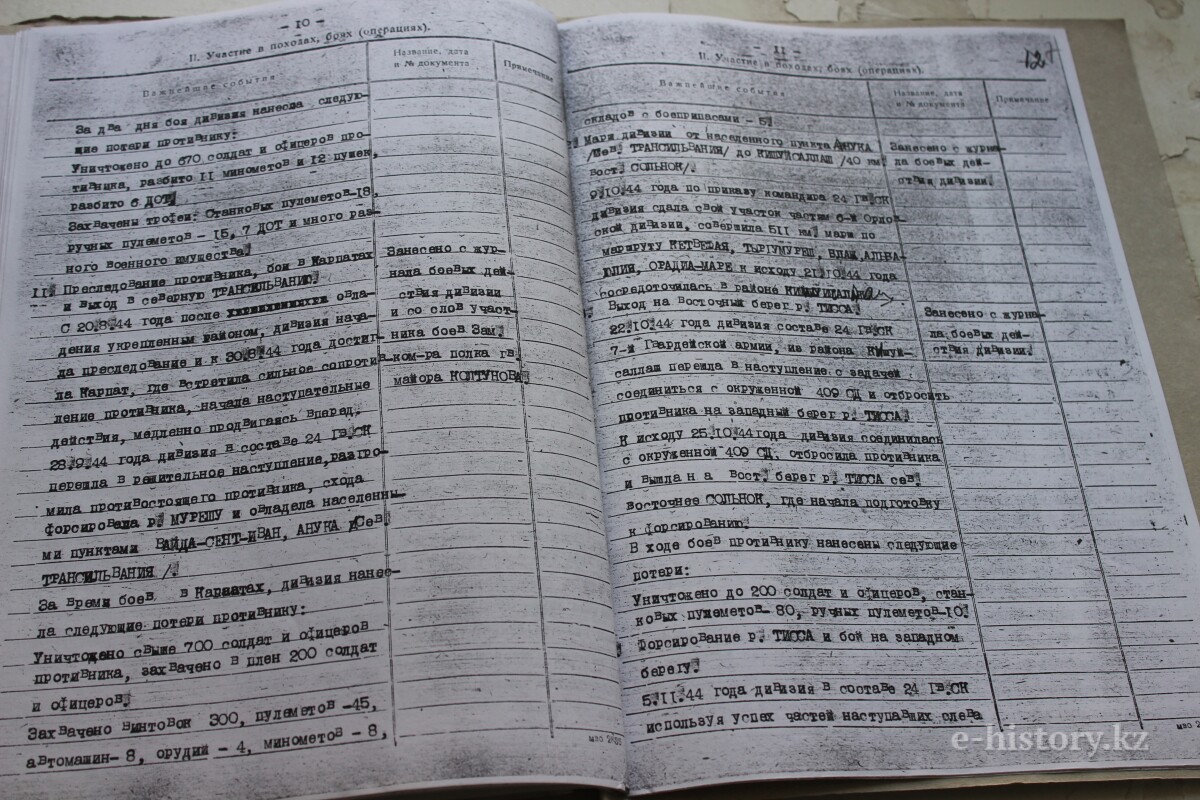 - 10 -
II. Участие в походах, боях (операциях).
Важнейшие события
Название, дата и № документа
Примечание
За два дня боя дивизия нанесла следую-
щие потери противнику:
Уничтожено до 670 солдат и офицеров про-
тивника, разбито 11 минометов и 12 пушек,
разбито 6 ДОТ.
Захвачены трофеи: Станковых пулеметов-18,
ручных пулеметов - 15, 7 ДОТ и много раз-
ного военного имущества.
II. Преследование противника, бои в Карпатах
и выход в северную ТРАНСИЛЬВАНИЮ.
С 20.8.44 года после овла-
дения укрепленным районом, дивизия нача-
ла преследование и к 30.8.44 года достиг-
ла Карпат, где встретила сильное сопротив-
ление противника, начала наступательные
действия, медленно продвигаясь вперед.
28.9.44 года дивизия в составе 24 Гв.СК
перешла в решительное наступление, разгро-
мила противостоящего противника, схода
форсировала р. МУРЕШУ и овладела населенны-
ми пунктами ВАЙДА-СЕНТ-ИВАН, АНУКА /Сев.
ТРАНСИЛЬВАНИЯ /.
За время боев в Карпатах, дивизия нанес-
ла следующие потери противнику:
Уничтожено свыше 700 солдат и офицеров
противника, захвачено в плен 200 солдат
и офицеров.
Захвачено винтовок 300, пулеметов -45,
автомашин- 8, орудий - 4, минометов - 8,
Занесено с жур-
нала боевых дей-
ствия дивизии
и со слов участ-
ника боев Зам.
ком-ра полка гв.
майора КОЛТУНОВА.
- 11 -
II. Участие в походах, боях (операциях).
Важнейшие события
Название, дата и № документа
Примечание
складов с боеприпасами - 5.
Марш дивизии от населенного пункта АНУКА
/Сев. ТРАНСИЛЬВАНИЯ/ до КИШУЙСАЛЛАШ /40 км.
Вост. СОЛЬНОК/.
9.10.44 года по приказу командира 24 Гв.СК
дивизия сдала свой участок частям 6-й Орлов-
ской дивизии, совершила 511 км. марш по
маршруту КЕТВЕЛАЯ, ТЫРГУМУРЕШ, БЛАЖ, АЛЬБА-
ЮЛИЯ, ОРАДИА-МАРЕ к исходу 21.10.44 года
сосредоточилась в районе
Выход на Восточный берег р. ТИССА.
22.10.44 года дивизия составе 24 Гв.СК
7-й Гвардейской армии, из района Кишуй-
саллаш перешла в наступление с задачей
соединиться с окруженной 409 СД и отбросить
противника на западный берег р. ТИССА.
К исходу 25.10.44года дивизия соединилась
с окруженной 409 СД, отбросила противника
и вышла н а вост. берег р. ТИССА сев.
восточнее СОЛЬНОК, где начала подготовку
к форсированию.
В ходе боев противнику нанесены следующие
потери:
Уничтожено до 200 солдат и офицеров, стан-
ковых пулеметов- 80, ручных пулеметов-10.
Форсирование р. ТИССА и бой на западном
берегу.
5.11.44 года дивизия в составе 24 Гв.СК
используя успех частей наступавших слева
Занесено с журна-
ла боевых дей-
ствия дивизии.
Занесено с журна-
ла боевых дей-
ствия дивизии.
e-history.kz